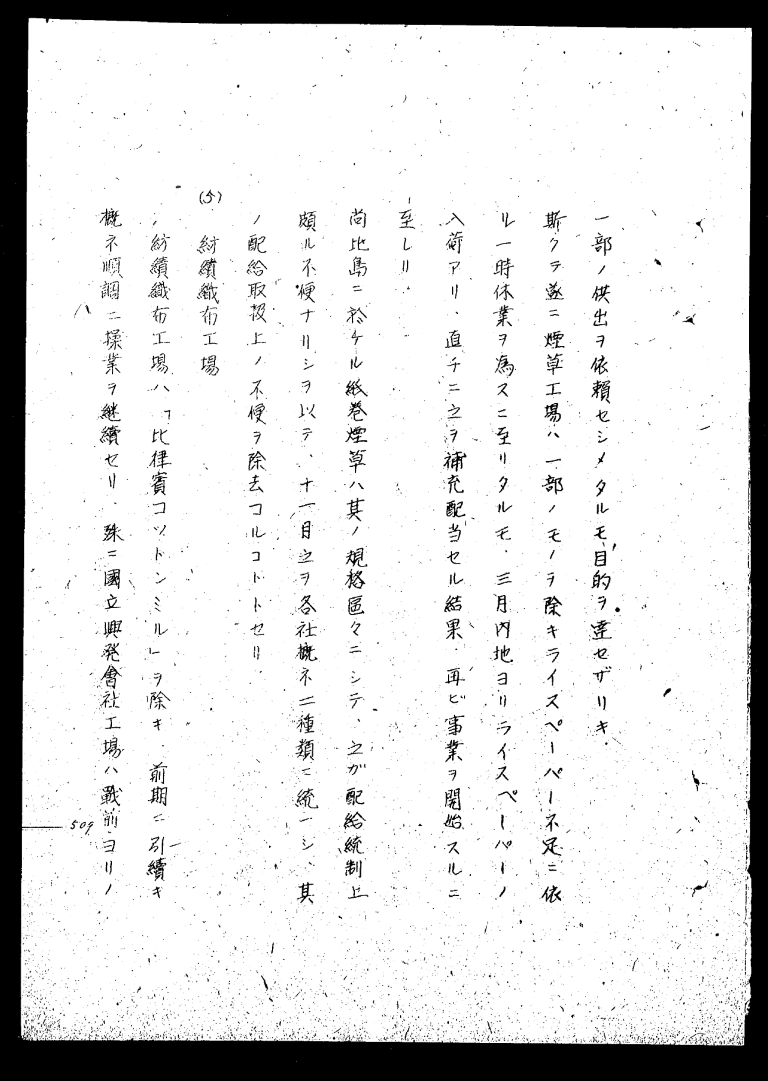 一部ノ供出ヲ依頼セシメタルモ、目的ヲ達セザリキ.
斯クテ遂ニ煙草工場ハ一部ノモノヲ除キライスペーパー不足ニ依
ル一時休業ヲ為スニ至リタルモ、三月内地ヨリライスペーパーノ
入荷アリ、直チニ之ヲ補充配当セル結果、再ビ事業ヲ開始スルニ
至レリ.
尚比島ニ於ケル紙巻煙草ハ其ノ規格區々ニシテ、之ガ配給統制上
頗ル不便ナリシヲ以テ、十一月之ヲ各社概ネ二種類ニ統一シ、其
ノ配給取扱上ノ不便ヲ除去コルコトトセリ.
(5) 紡績織布工場
紡績織布工場ハ「比律賓コットンミル」ヲ除キ、前期ニ引續キ
概ネ順調ニ操業ヲ継續セリ、殊ニ國立興発會社工場ハ戰前ヨリノ
509